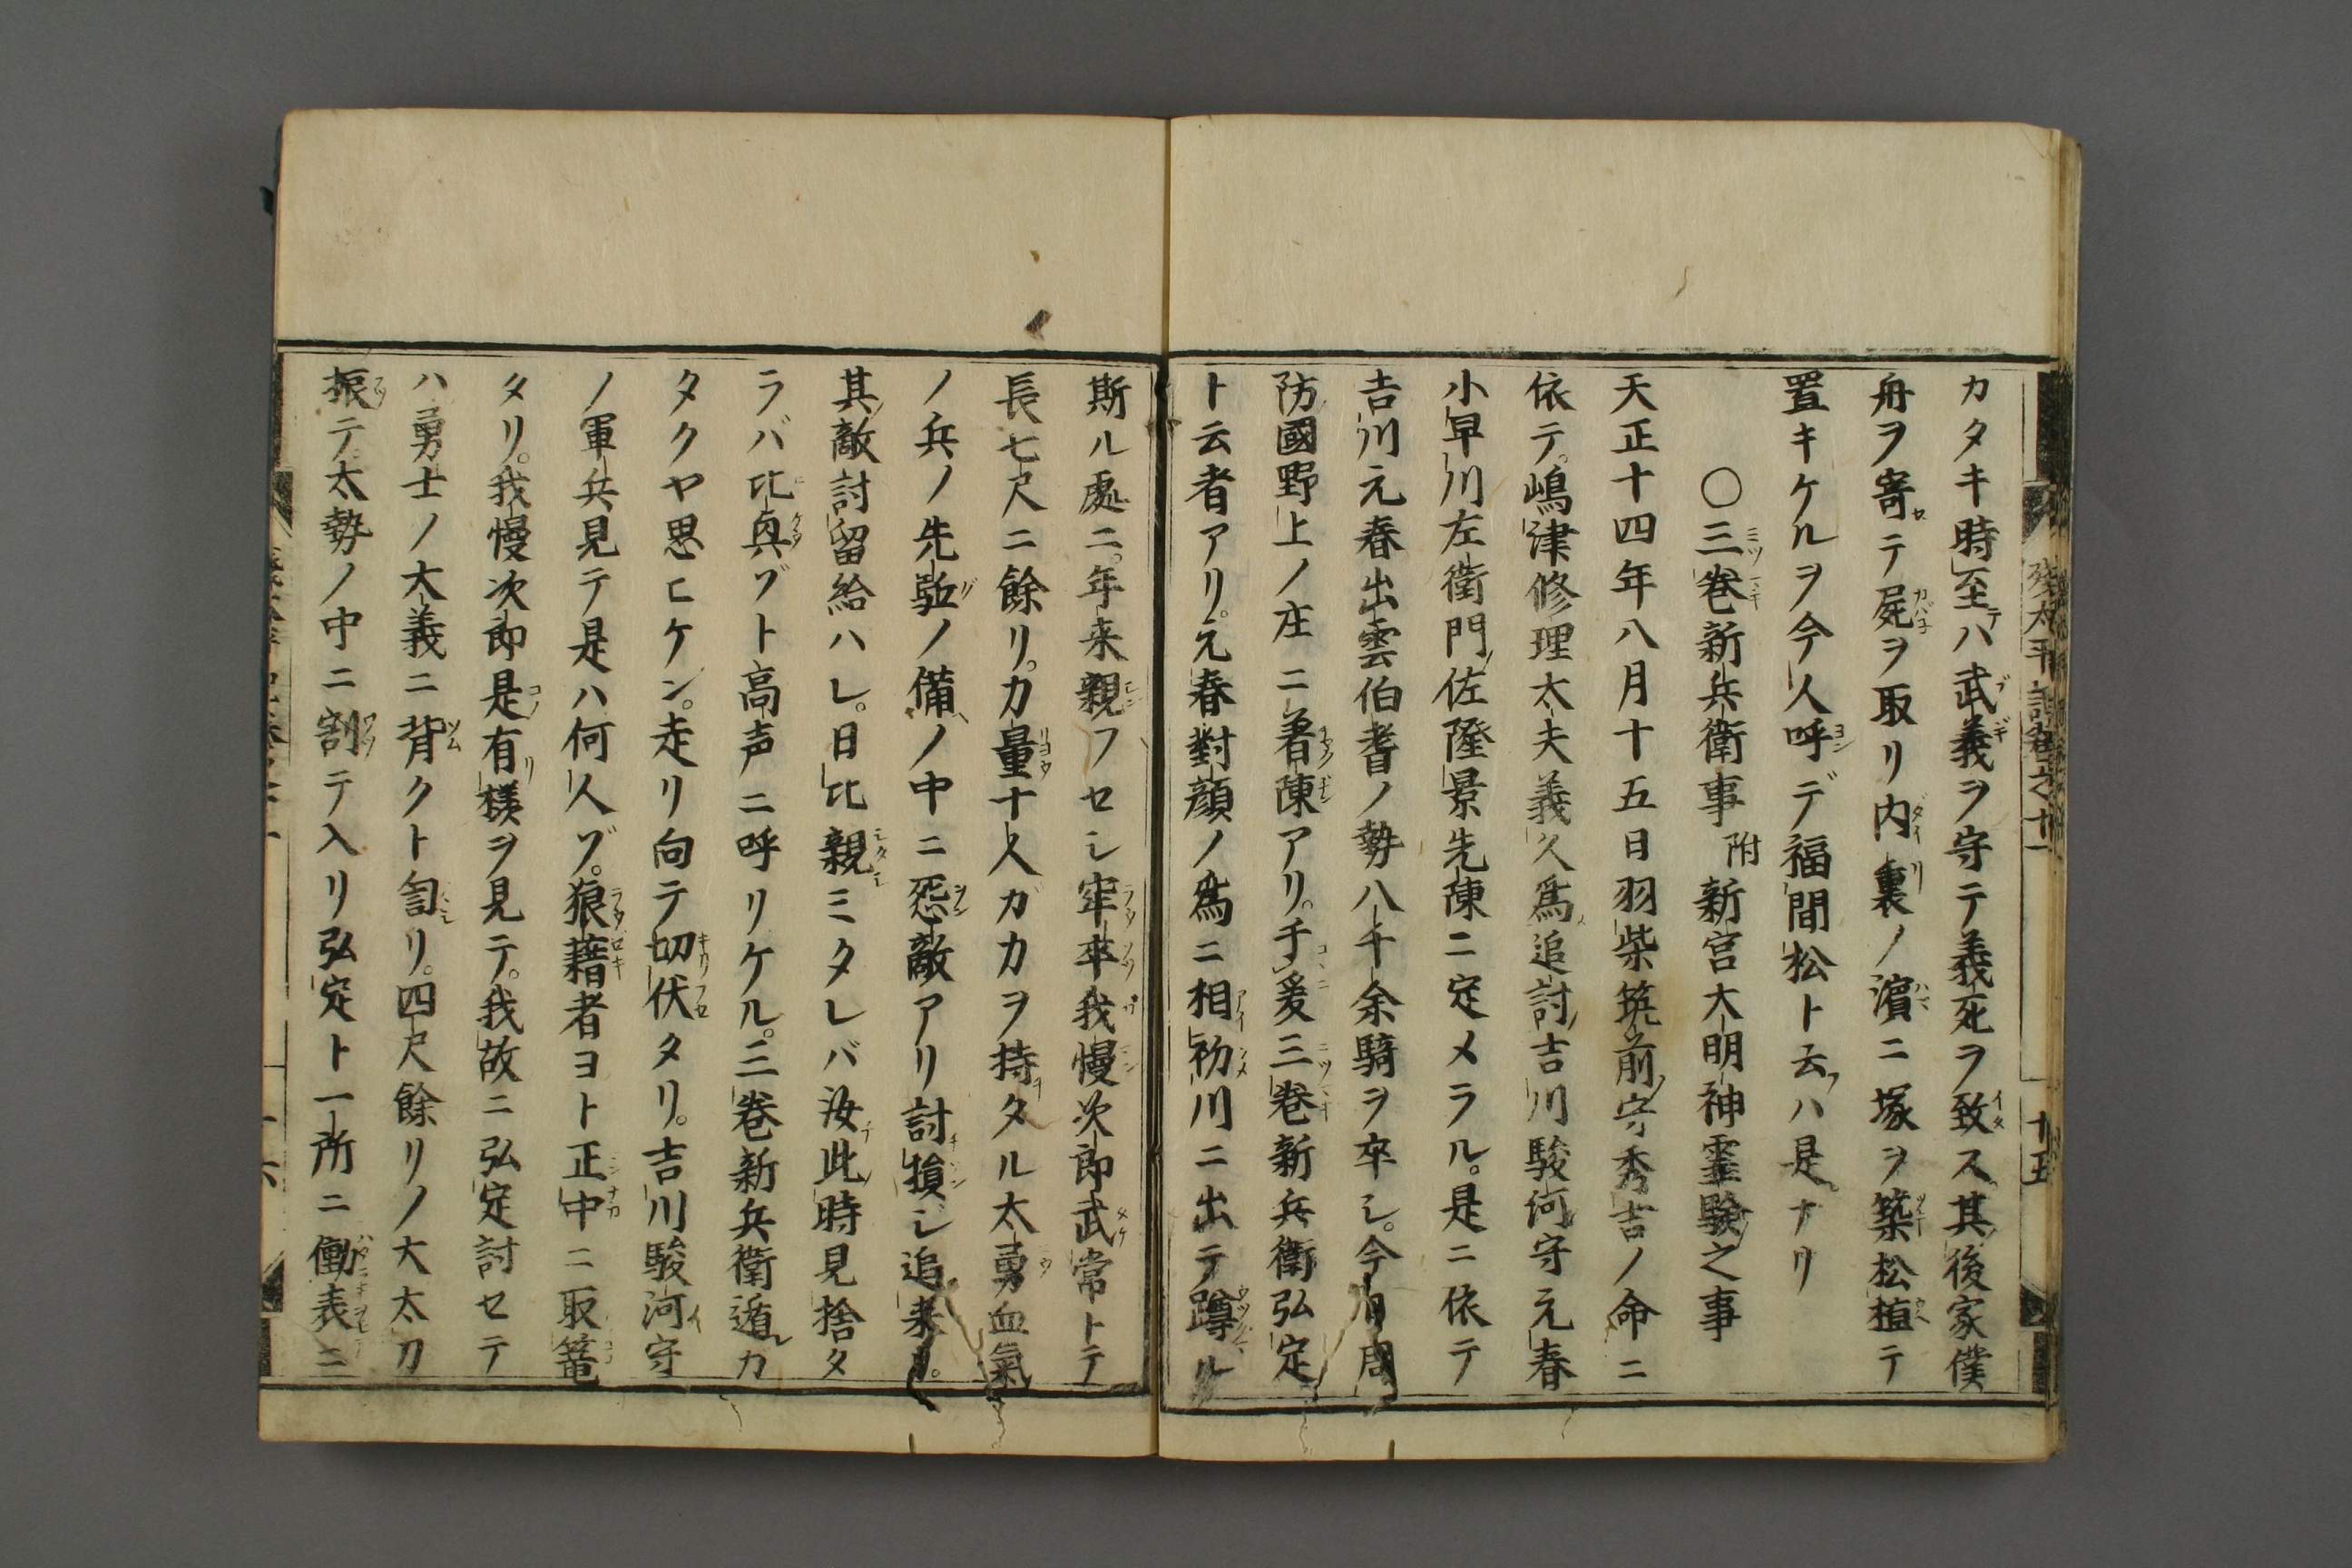 カタキ時至テハ武義ヲ守テ義死ヲ致ス其後家僕
舟ヲ寄テ屍ヲ取リ内裏ノ濵ニ塚ヲ築松植テ
置キケルヲ今人呼デ福間松ト云フハ是ナリ
〇三巻新兵衛事 附 新宮大明神靈驗之事
天正十四年八月十五日羽柴筑前守秀吉ノ命ニ
依テ。嶋津修理太夫義久為追討吉川駿河守元春
小早川左衛門佐隆景先陳ニ定メラル。是ニ依テ
吉川元春出雲伯耆ノ勢八千余騎ヲ卒シ。今月周
防國野上ノ庄ニ着陳アリ。于爰三巻新兵衛弘定
ト云者アリ。元春對顔ノ為ニ相初川ニ出テ蹲ル
斯ル處ニ。年来親フセシ牢卒我慢次郎武常トテ
長七尺ニ餘リ。力量十人ガカヲ持タル太勇血氣
ノ兵ノ先駈ノ備ノ中ニ怨敵アリ討損ジ追来リ。
其敵討留給ハレ。日比親ミタレバ汝此時見捨タ
ラバ比真ゾト高声ニ呼リケル。三巻新兵衛遁レカ
タクヤ思ヒケン。走リ向テ切伏タリ。吉川駿河守
ノ軍兵見テ是ハ何人ゾ。狼藉者ヨト正中ニ取篭
タリ。我慢次郎是有様ヲ見テ。我故ニ弘定討セテ
ハ勇士ノ大義ニ背クト訇リ。四尺餘リノ大太刀
振テ。太勢ノ中ニ割テ入リ弘定ト一所ニ働表ニ